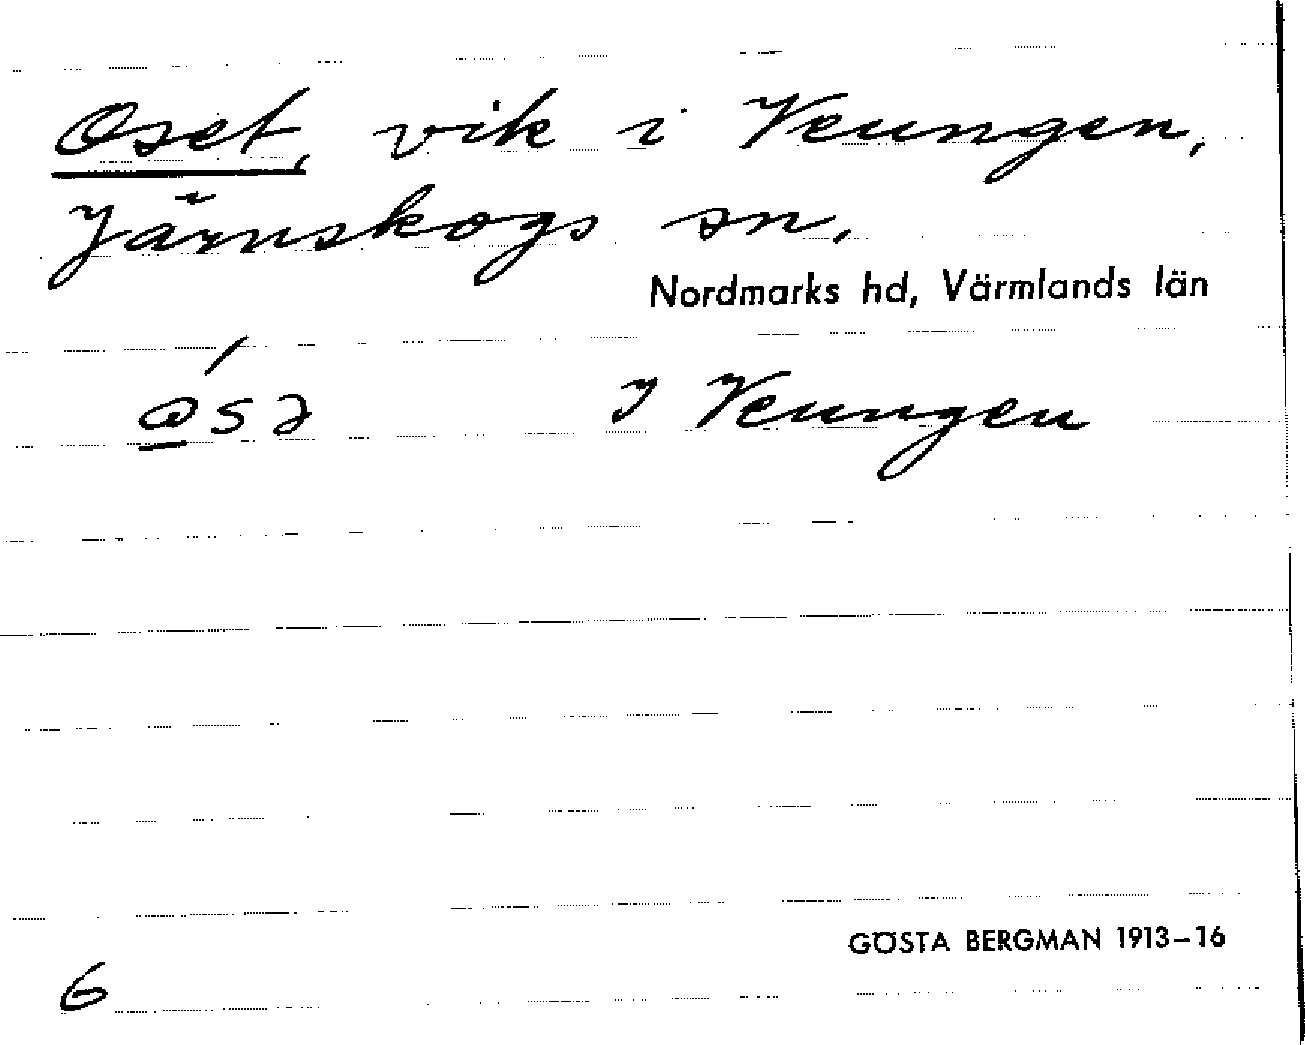 Oset, vik i Veungen,
Järnskogs sn.
Nordmarks hd, Värmlands län
I Veungen
GÖSTA BERGMAN 1913–16
6